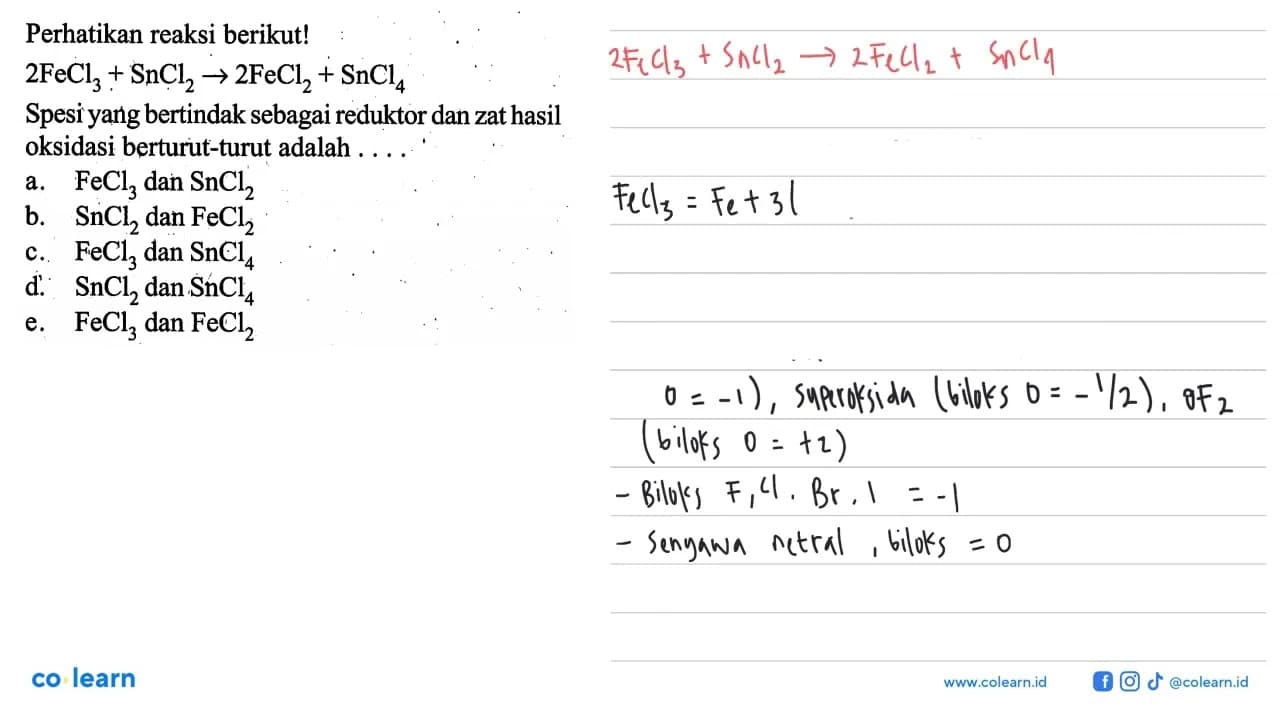 Perhatikan reaksi berikut!
2FeCl₃ + SnCl₂ → 2FeCl₂ + SnCl₄
Spesi yang bertindak sebagai reduktor dan zat hasil
oksidasi berturut-turut adalah . . . .
a. FeCl₃ dan SnCl₂
b. SnCl₂ dan FeCl₂
c. FeCl₃ dan SnCl₄
d. SnCl₂ dan SnCl₄
e. FeCl₃ dan FeCl₂
2FeCl₃ + SnCl₂ → 2FeCl₂ + SnCl₄
FeCl₃ = Fe + 3(
O = -1), superoksida (biloks O = -1/2), OF₂
(biloks O = +2)
- Biloks F, Cl, Br, I = -1
- Senyawa netral, biloks = 0
co learn
www.colearn.id
@colearn.id